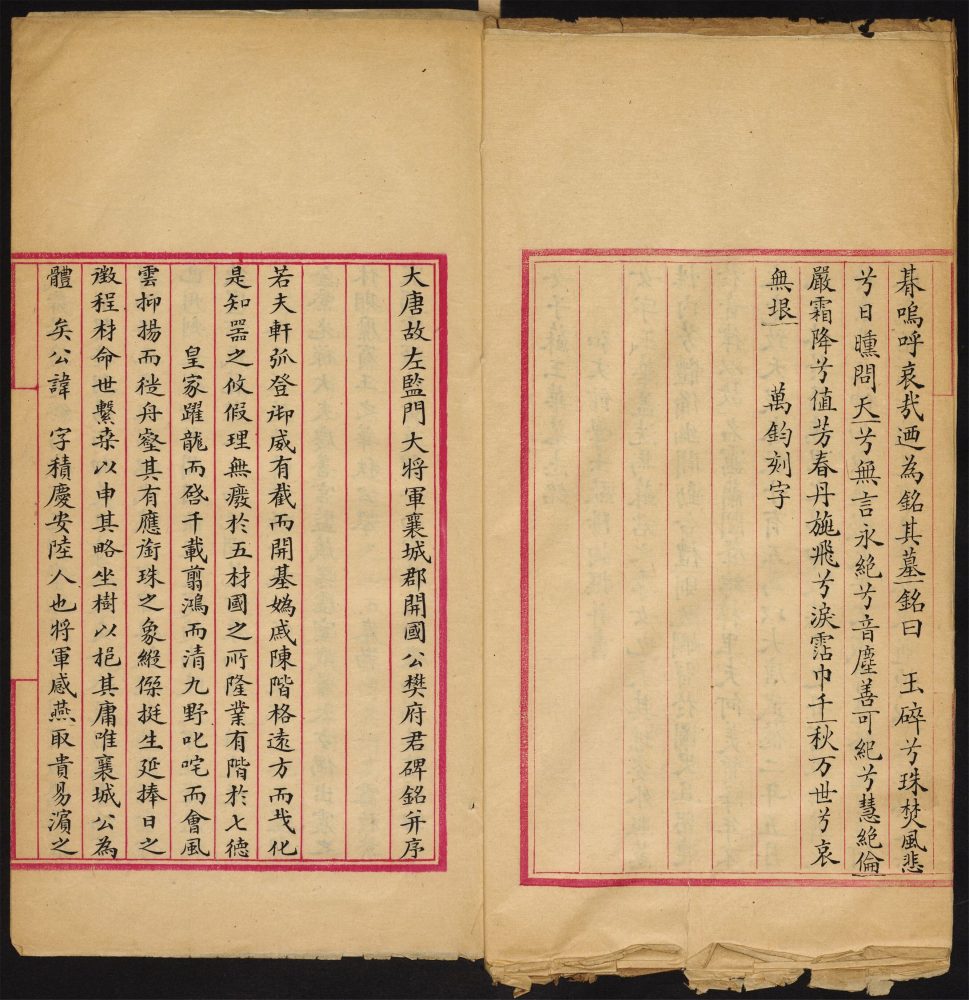 朞嗚呼哀哉迺為銘其墓銘曰　玉碎兮珠焚風悲
兮日曛問天兮無言永絕兮音塵善可紀兮慧絕倫
嚴霜降兮值芳春丹旐飛兮淚霑巾千秋万世兮哀
無垠　　萬鈞刻字
大唐故左監門大將軍襄城郡開國公樊府君碑銘并序
若夫軒弧登御威有截而開基媯戚陳階格遠方而我化
是知器之攸假理無癈於五材國之所隆業有階於七德
　　皇家躍龍而啓千載翦鴻而清九野叱咤而會風
雲抑揚而徙舟壑其有應銜珠之象緞傑挺生延捧日之
徵程材命世繫桒以申其略坐樹以挹其庸唯襄城公為
體　矣公諱　字積慶安陸人也將軍感燕取貴易濵之